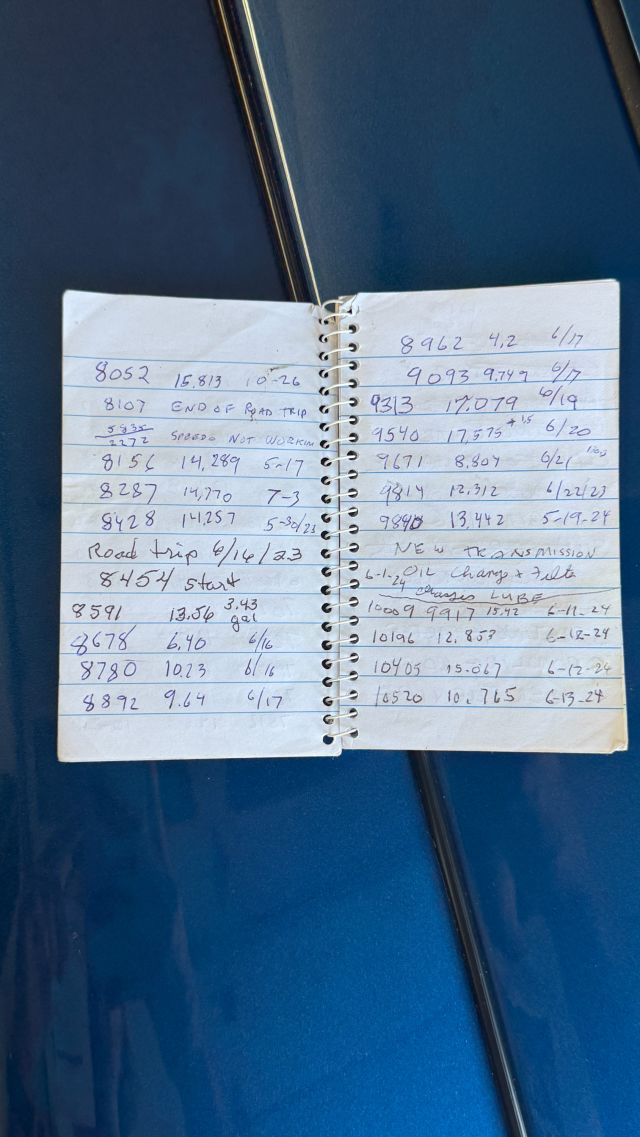 8052 15.813 10-26
8107 END OF ROAD TRIP
5835
2272 SPEEDO NOT WORKIN
8156 14,289 5-17
8287 14,770 7-3
8428 14,257 5-30/23
Road trip 6/16/23
8454 start
8591 13.56 3.43 gal
8678 6.40 6/16
8780 10.23 6/16
8892 9.64 6/17
8962 4,2 6/17
9093 9.749 6/17
9313 17.079 6/19
9540 17,575 + 1.5 6/20
9671 8.804 6/21
9814 12.312 6/22/23
9840 13,442 5-19-24
NEW TRANSMISSION
6-1-24 OIL Change + Filte
changes LUBE
10009 9917 15.42 6-11-24
10196 12.853 6-12-24
10405 15.067 6-12-24
10520 10.765 6-13-24